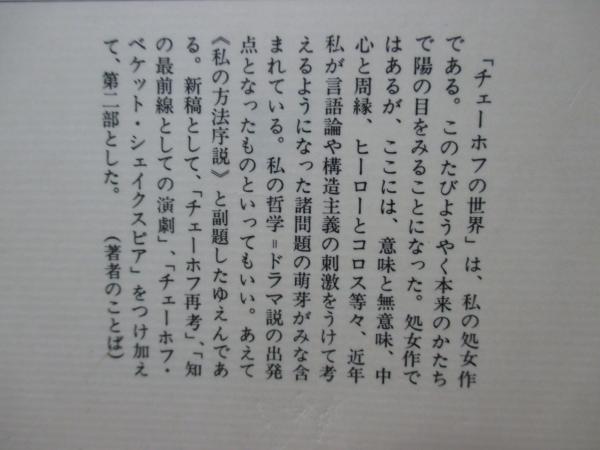 「チェーホフの世界」は、私の処女作
である。このたびようやく本来のかたち
で陽の目をみることになった。処女作で
はあるが、ここには、意味と無意味、中
心と周縁、ヒーローとコロス等々、近年
私が言語論や構造主義の刺激をうけて考
えるようになった諸問題の萌芽がみな含
まれている。私の哲学＝ドラマ説の出発
点となったものといってもいい。あえて
《私の方法序説》と副題したゆえんであ
る。新稿として、「チェーホフ再考」、「知
の最前線としての演劇」、「チェーホフ・
ベケット・シェイクスピア」をつけ加え
て、第二部とした。　（著者のことば）